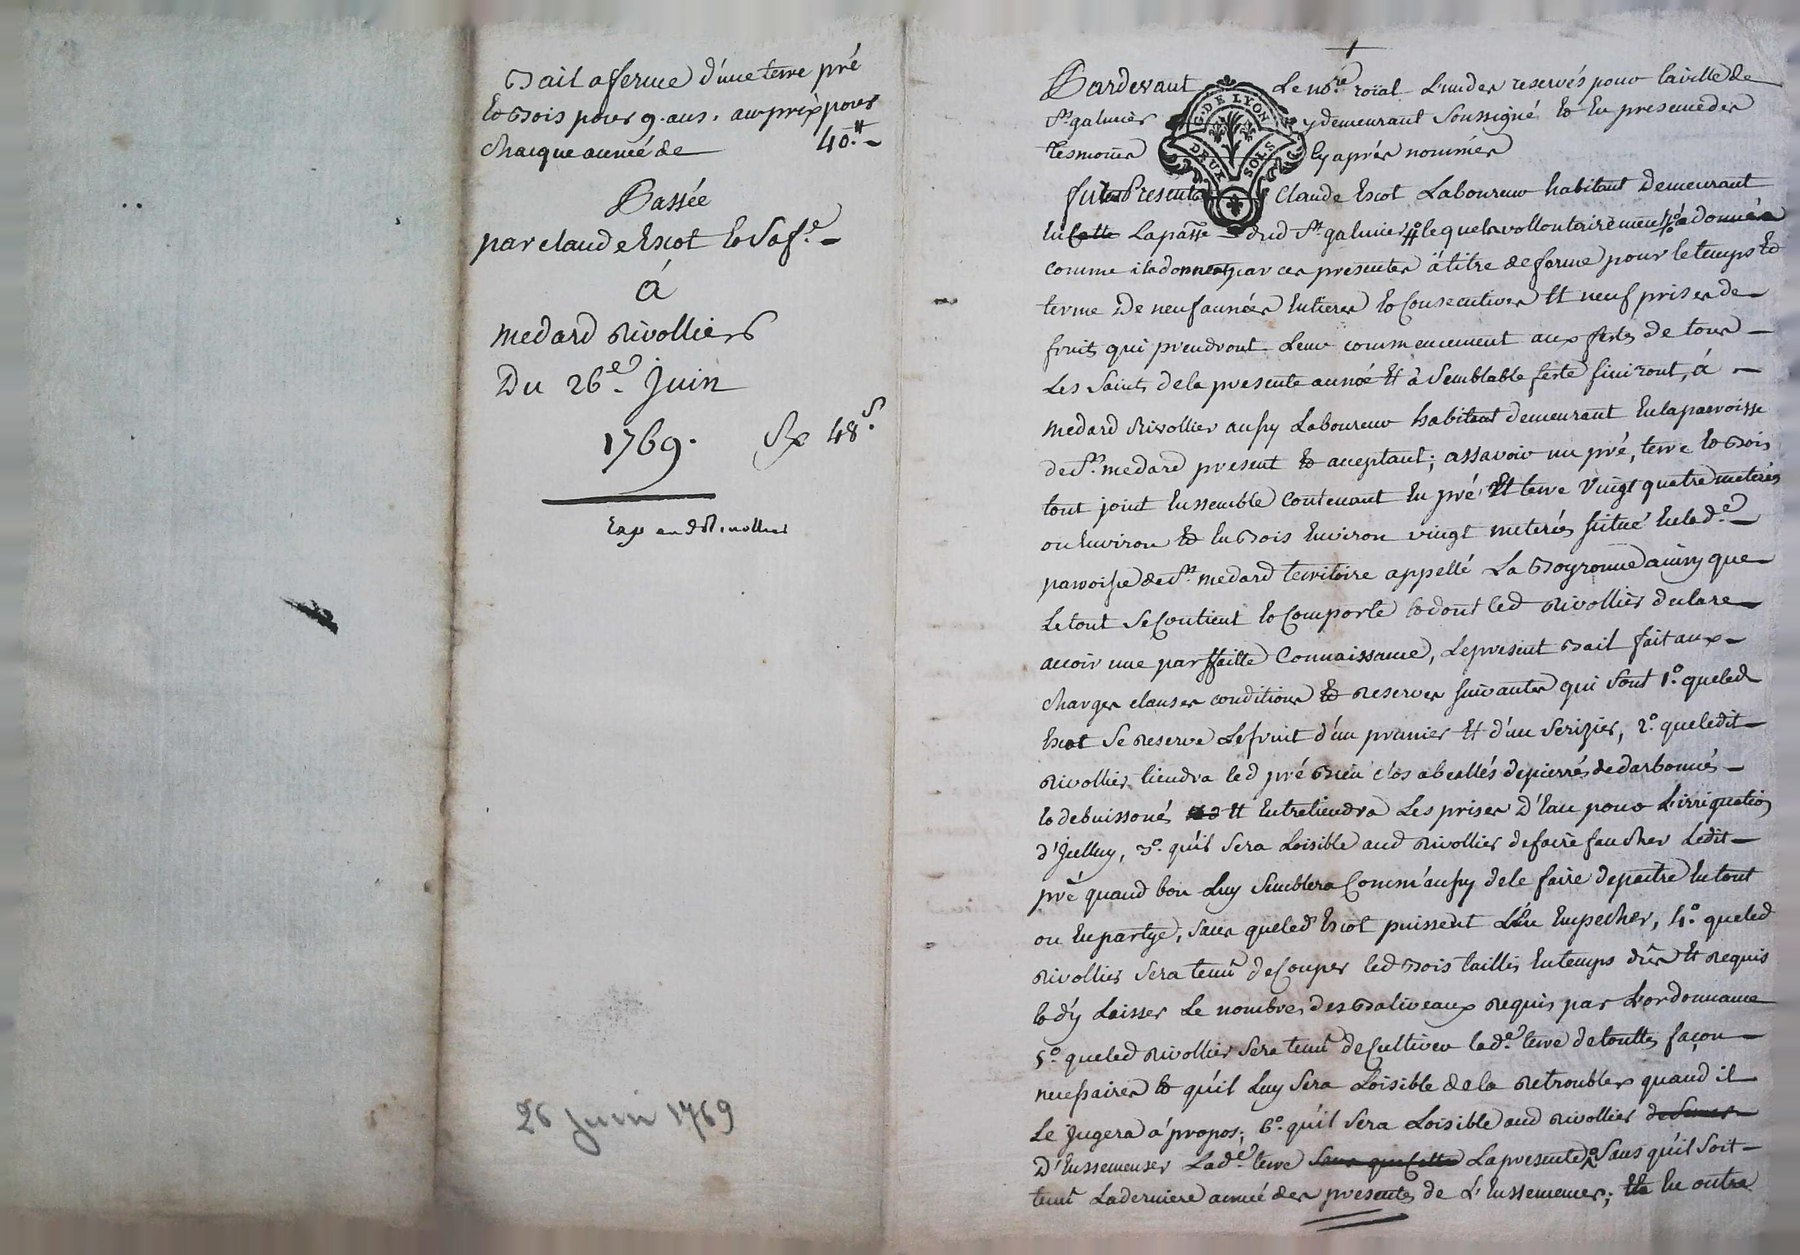 Bail a ferme d'une terre pré
et Bois pour 9. ans. au prix pour
chacque année de 40.tt
Passée
par claude Escot et Sa fe.
á
medard Rivollier
Du 26e. Juin
1769. 48.s
26 Juin 1769
Pardevant Le nore. roial L'un des reservés pour la ville de
St. galmier y demeurant Soussigné et En presence des
tesmoins cy aprés nommés
G. DE LYON
DEUX SOLS
fut Presente Claude Escot Laboureur habitant Demeurant
En Cette La passe dud St. galmier lequel vollontairement a donné
comme il a donne par ces presentes á titre de ferme pour le temps Et
terme De neuf années Entieres et Consecutives Et neuf prises de
fruits qui prendront Leur commencement aux festes de tous
Les Saints de la presente année Et á Semblable feste finiront, á
medard Rivollier aussy Laboureur habitant demeurant En la parroisse
de St. medard present Et aceptant; assavoir un pré, terre et Bois
tout joint Enssemble contenant En pré Et terre Vingt quatre meterés
ou Environ Et En Bois Environ vingt meterés Situé En lad.e
parroisse de St. medard territoire appellé La Boyronne ainsy que
Le tout Se Contient et Comporte et dont led Rivollier declare
avoir une parffaitte Connaissance, Le present Bail fait aux
charges clauses conditions Et Reserves suivantes qui sont 1.o que led
Escot Se Reserve Le fruit d'un prunier Et d'un Serizier, 2.o que ledit
Rivollier tiendra led pré Bien clos abeallés depierrés dedarbonnés
et debuissonés Et Entretiendra Les prises D'Eau pour L'irrigation
d'Jcelluy, 3.o qu'il Sera Loisible aud Rivollier de faire faucher Ledit
pré quand bon Luy Semblera Comm'aussy de le faire depaitre En tout
ou En partye, Sans que led Escot puissent L'en Empecher, 4.o que led
Rivollier Sera tenu de Couper led Bois taillis En temps dûs Et Requis
et d'y Laisser Le nombre des Baliveaux Requis par L'ordonnance
5.o que led Rivollier Sera tenu de Cultiver lad.e terre de touttes façon
necessaires Et qu'il Luy Sera Loisible de la Retroubler quand il
Le Jugera á propos; 6.o qu'il Sera Loisible aud Rivollier de Semer
D'Enssemenser Lad.e terre Sans que Cette La presente Sans qu'il Soit
tenu La derniere année des presentes de L'Enssemenser; Et En outre